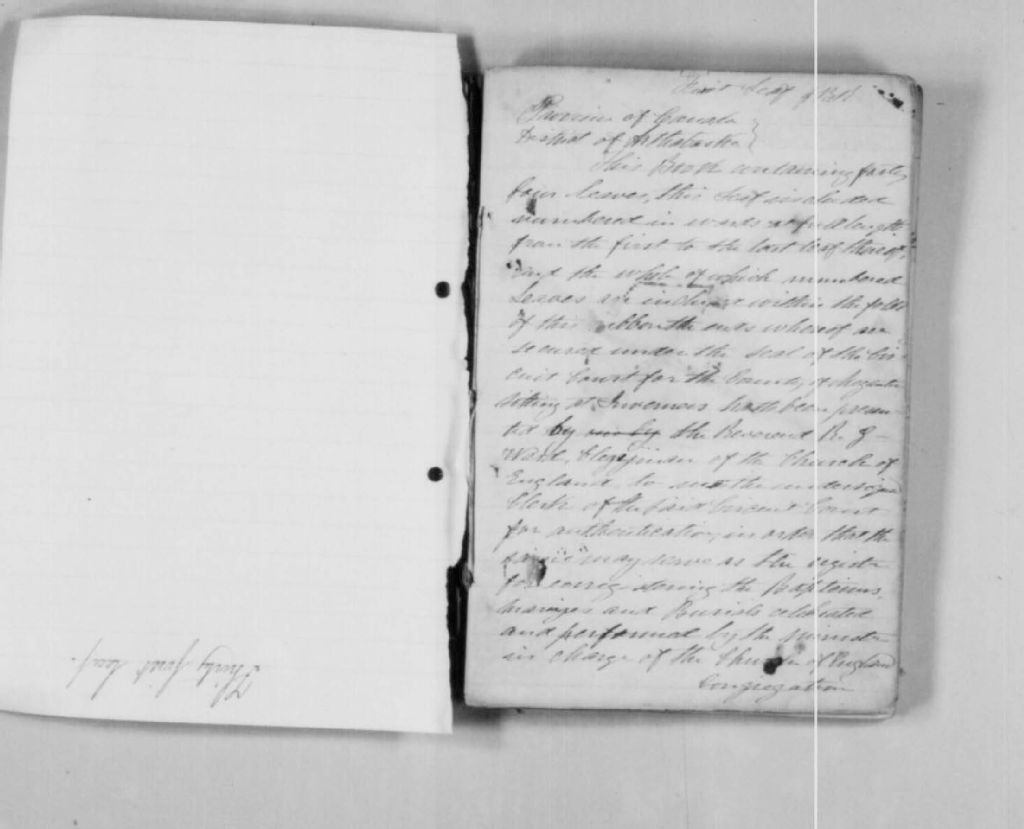 Thirty first leaf.
First Leaf
Province of Canada
District of Arthabaska
This Book containing forty
four leaves, this leaf included
numbered in words at full length
from the first to the last leaf thereof,
and the whole of which numbered
leaves are inclosed within the folds
of this ribbon the ends whereof are
secured under the seal of the Cir-
cuit Court for the County of Megantic
sitting at Inverness hath been presen-
ted by the Reverend R. G.
Ward, Clergyman of the Church of
England, to me the undersigned
Clerk of the said Circuit Court
for authentication, in order that the
same may serve as the register
for enregistering the Baptisms,
Marriages and Burials celebrated
and performed by the Minister
in charge of the Church of England
Congregation